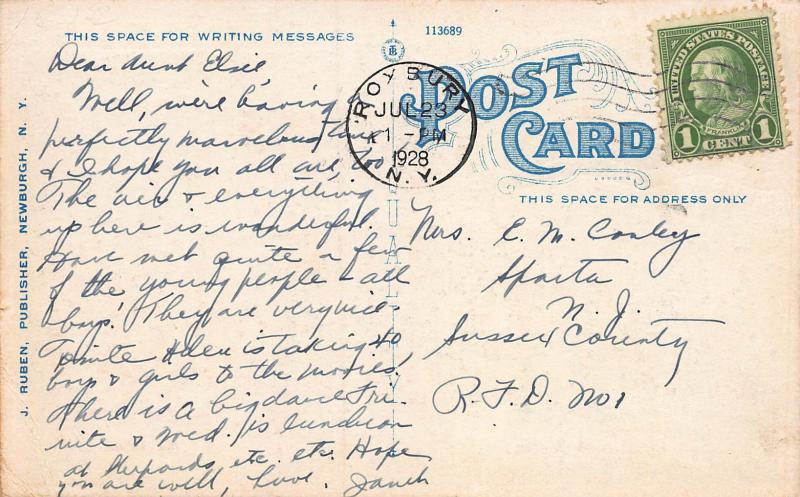 THIS SPACE FOR WRITING MESSAGES
113689
POST CARD
THIS SPACE FOR ADDRESS ONLY
ROXBURY
JUL 23
1 - PM
1928
N.Y.
UNITED STATES POSTAGE
FRANKLIN
1 CENT 1
J. RUBEN, PUBLISHER, NEWBURGH, N. Y.
QUALITY
Dear Aunt Elsie,
Well, we're having a
perfectly marvelous time
& I hope you all are, too
The air & everything
up here is wonderful.
Have met quite a few
of the young people - all
boys! They are very nice
Tonite Helen is taking 40
boys & girls to the movies.
There is a big dance Fri.
nite & Wed. is luncheon
at etc. etc. Hope
you are well, Love.
Mrs. E. M. Conley
Sparta
N. J.
Sussex County
R.F.D. No 1